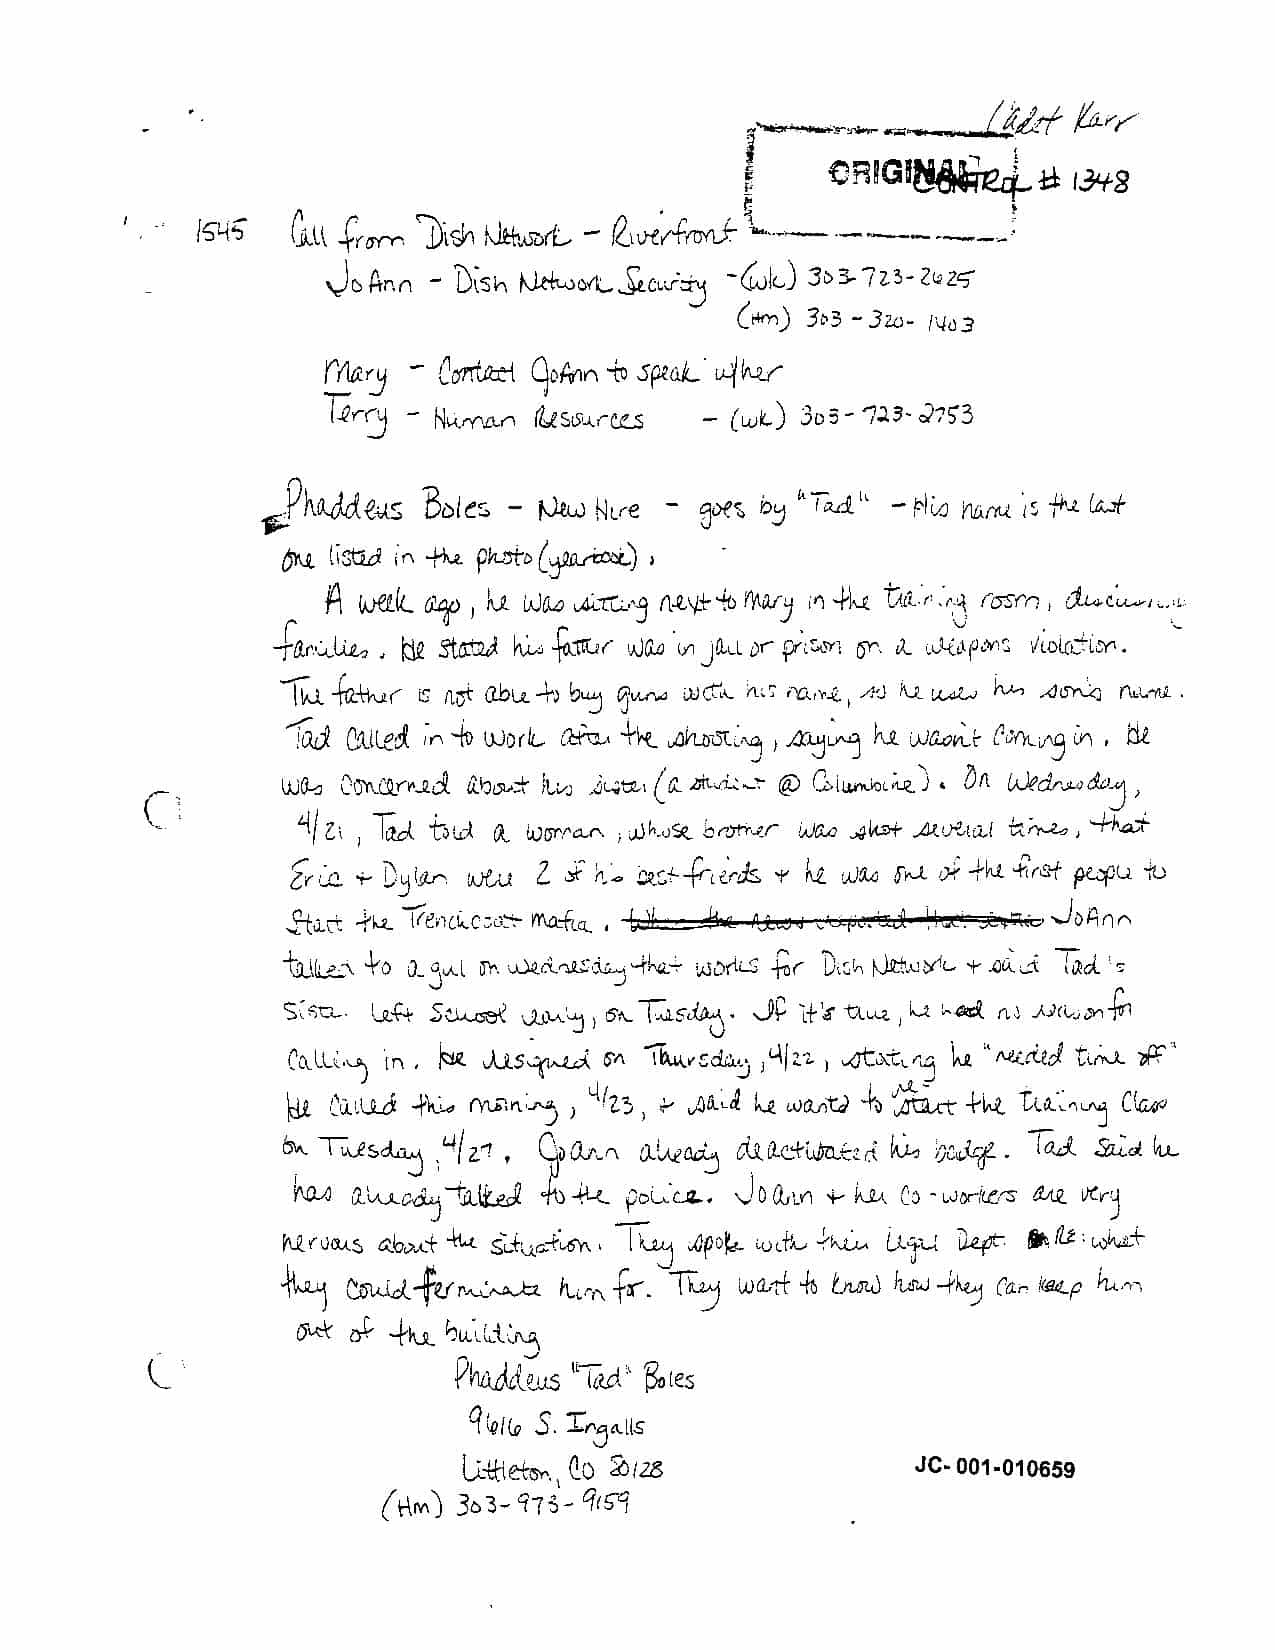 Cadet Karr
ORIGINAL
Control # 1348
1545 Call from Dish Network - Riverfront
JoAnn - Dish Network Security - (wk) 303-723-2625
(Hm) 303-320-1403
Mary - Contact JoAnn to speak w/her
Terry - Human Resources - (wk) 303-723-2753
Phaddeus Boles - New Hire - goes by "Tad" - His name is the last
one listed in the photo (yearbook).
A week ago, he was sitting next to Mary in the training room, discussing
families. He stated his father was in jail or prison on a weapons violation.
The father is not able to buy guns with his name, so he uses his son's name.
Tad called in to work after the shooting, saying he wasn't coming in. He
was concerned about his sister (a student @ Columbine). On Wednesday,
4/21, Tad told a woman, whose brother was shot several times, that
Eric + Dylan were 2 of his best friends + he was one of the first people to
start the Trenchcoat mafia. JoAnn
talked to a gal on Wednesday that works for Dish Network + said Tad's
sister left school early, on Tuesday. If it's true, he had no reason for
calling in. He resigned on Thursday, 4/22, stating he "needed time off"
He called this morning, 4/23, + said he wants to restart the training class
on Tuesday, 4/27. Joann already deactivated his badge. Tad said he
has already talked to the police. JoAnn + her co-workers are very
nervous about the situation. They spoke with their Legal Dept. Re: what
they could terminate him for. They want to know how they can keep him
out of the building
Phaddeus "Tad" Boles
9616 S. Ingalls
Littleton, CO 80128
(Hm) 303-973-9159
JC-001-010659